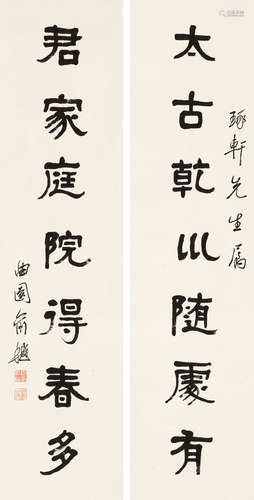 琢軒先生屬
太古乾巛随處有
君家庭院得春多
曲園俞樾